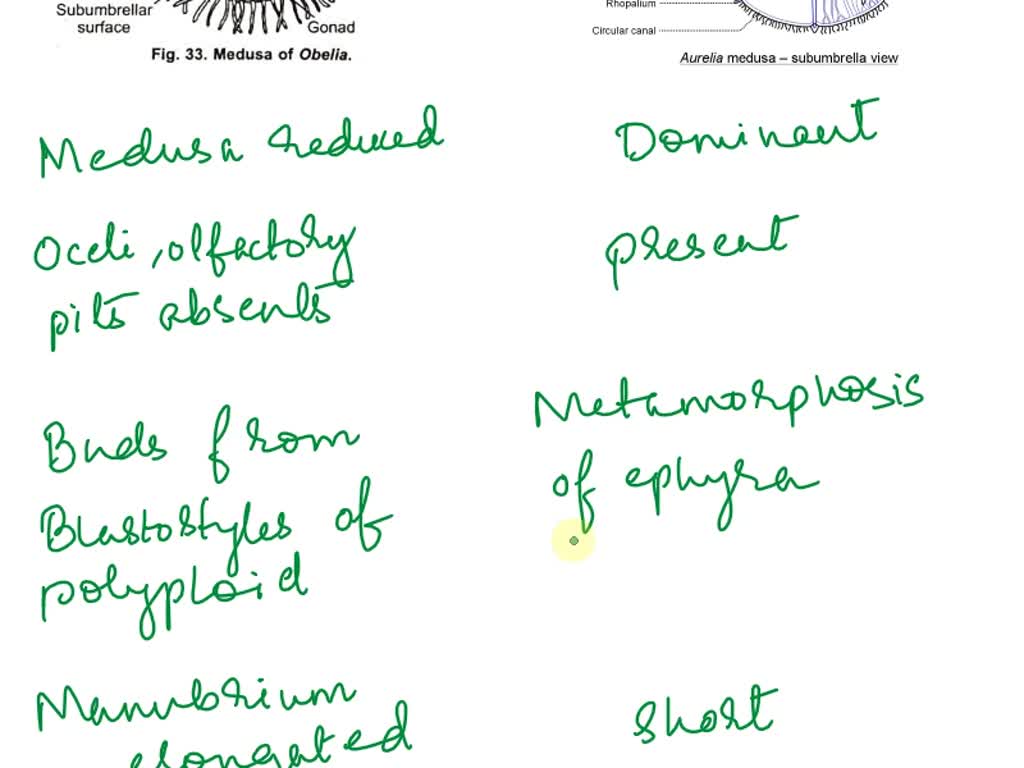 Subumbrellar
surface
Gonad
Fig. 33. Medusa of Obelia.
Rhopalium
Circular canal
Aurelia medusa – subumbrella view
Medusa reduced
Dominant
Oceli, olfactory
pits absents
present
Buds from
Blastostyles of
polyploid
Metamorphosis
of ephyra
Manubrium
elongated
short